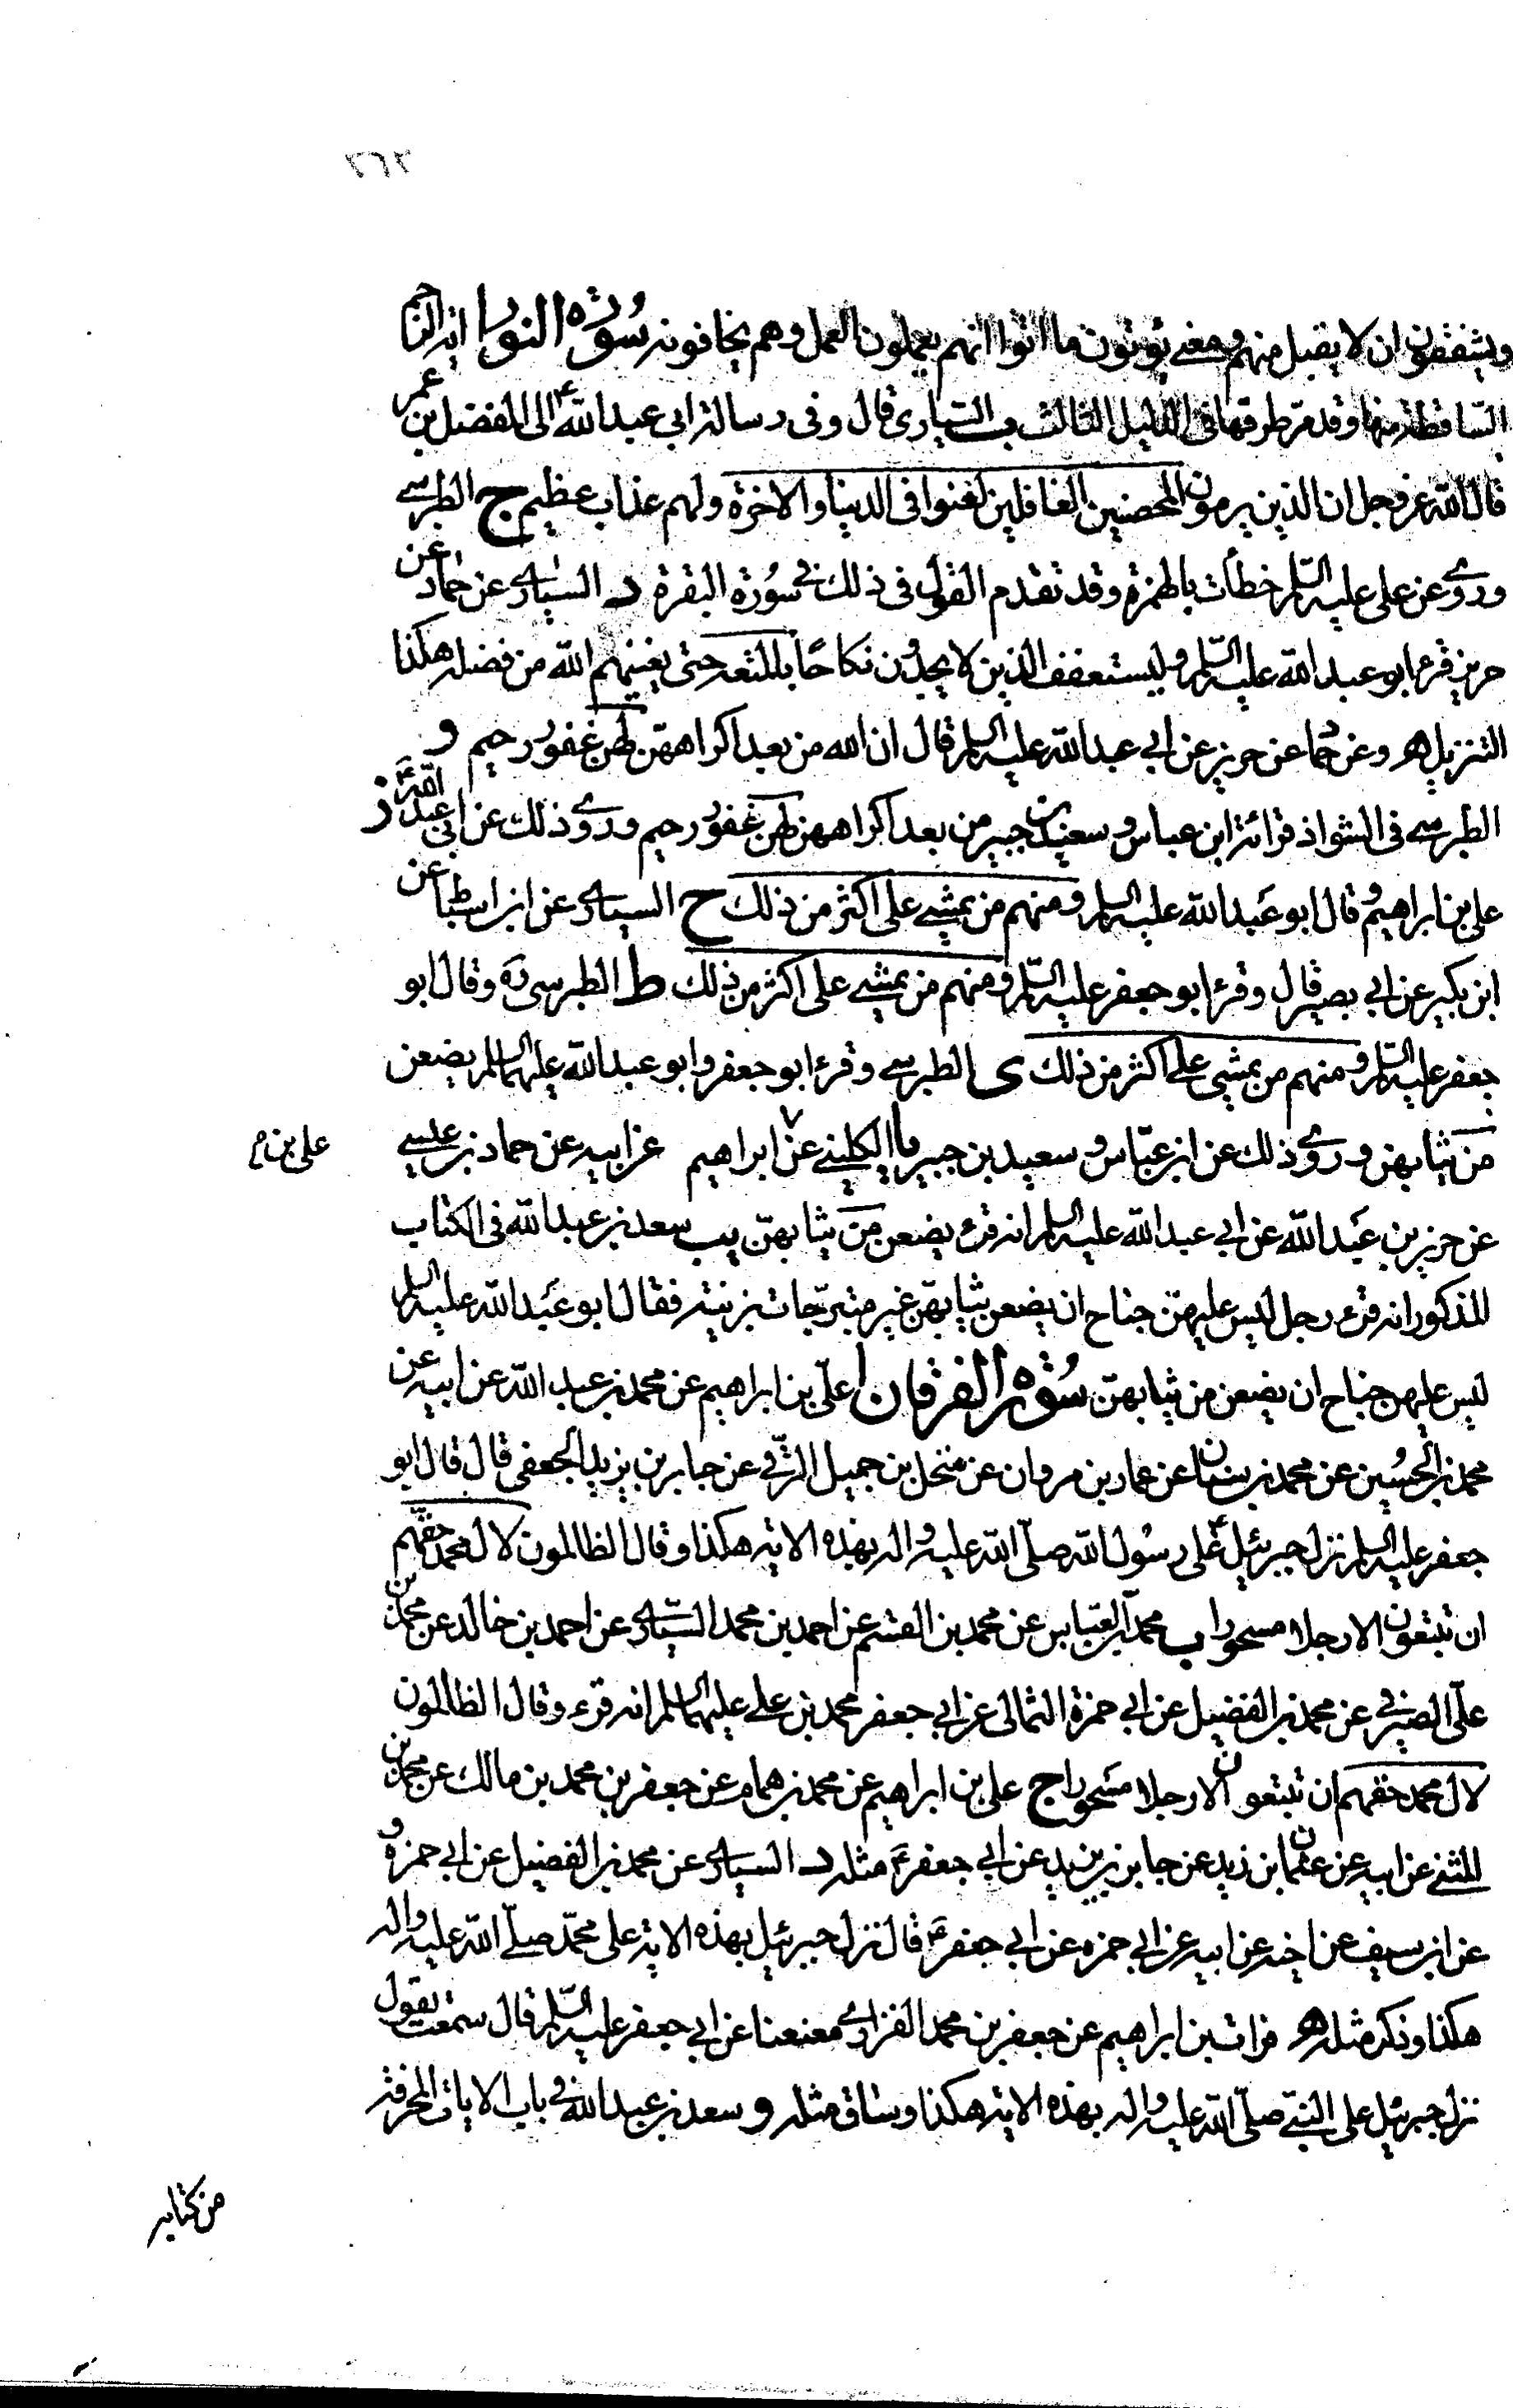 ٢٦٢
ويشفقون ان لا يقبل منهم ومعنى يؤتون ما اتوا انهم يعملون العمل وهم يخافونه سُورة النور ا اية الرجم
الساقطة منها وقد مرّ طرقها فى الدليل الثالث ب السيارى قال وفى رسالة ابى عبد الله ع الى المفضل بن عمر
قال الله عز وجل ان الذين يرمون المحصنين الغافلين لعنوا فى الدنيا والاخرة ولهم عذاب عظيم ج الطبرسى
وروى عن على عليه السلام خطأت بالهمزة وقد تقدم القول فى ذلك فى سُورة البقرة د السيارى عن حماد عن
حريز قرء ابو عبد الله عليه السلام وليستعفف الذين لا يجدون نكاحًا بالمتعه حتى يغنيهم الله من فضله هكذا
التنزيل ه وعن حماد عن حريز عن ابى عبد الله عليه السلام قال ان الله من بعد اكراههنّ لهن غفور رحيم و
الطبرسى فى الشواذ قرائة ابن عباس و سعيد بن جبير من بعد اكراههن لهن غفور رحيم وروى ذلك عن ابى عبد الله ع ز
على بن ابراهيم وقال ابو عبد الله عليه السلام ومنهم من يمشى على اكثر من ذلك ح السيارى عن ابن اسباط عن
ابن بكير عن ابى بصير قال وقرء ابو جعفر عليه السلام ومنهم من يمشى على اكثر من ذلك ط الطبرسى ره وقال ابو
جعفر عليه السلام ومنهم من يمشى على اكثر من ذلك ى الطبرسى وقرء ابو جعفر وابو عبد الله عليهما السلام يضعن
من ثيابهن وروى ذلك عن ابن عبّاس و سعيد بن جبير يا الكلينى عن ابراهيم عن ابيه عن حماد بن عيسى
على بن
عن حريز بن عبد الله عن ابى عبد الله عليه السلام انه قرء يضعن من ثيابهنّ يب سعد بن عبد الله فى الكتاب
المذكور انه قرء رجل ليس عليهنّ جناح ان يضعن ثيابهنّ غير متبرّجات بزينة فقال ابو عبد الله عليه السلام
ليس عليهن جناح ان يضعن من ثيابهنّ سُورة الفرقان ا علىّ بن ابراهيم عن محمد بن عبد الله عن ابيه عن
محمد بن الحسين عن محمد بن سنان عن عمار بن مروان عن منخل بن جميل الرّقى عن جابر بن يزيد الجعفى قال قال ابو
جعفر عليه السلام نزل جبرئيل ع على رسُول الله صلّى الله عليه واله بهذه الاية هكذا وقال الظالمون لال محمد حقهم
ان تتبعون الا رجلا مسحورا ب محمد بن العبّاس عن محمد بن القسم عن احمد بن محمد السيارى عن احمد بن خالد عن محمد بن
علىّ الصيرفى عن محمد بن الفضيل عن ابى حمزة الثمالى عن ابى جعفر محمد بن على عليهما السلام انه قرء وقال الظالمون
لال محمد حقهم ان تتبعون الا رجلا مسحورا ج على بن ابراهيم عن محمد بن همام عن جعفر بن محمد بن مالك عن محمد بن
المثنى عن ابيه عن عثمان ابن زيد عن جابر بن يزيد عن ابى جعفر ع مثله د السيارى عن محمد بن الفضيل عن ابى حمزه و
عن ابن سيف عن اخيه عن ابيه عن ابى حمزه عن ابى جعفر ع قال نزل جبرئيل بهذه الاية على محمّد صلّى الله عليه واله
هكذا وذكر مثله ه فرات بن ابراهيم عن جعفر بن محمد الفزارى معنعنا عن ابى جعفر عليه السّلام قال سمعت يقول
نزل جبرئيل على النبىّ صلّى الله عليه واله بهذه الاية هكذا وساق مثله و سعد بن عبد الله فى باب الايات المحرفة
من كتابه